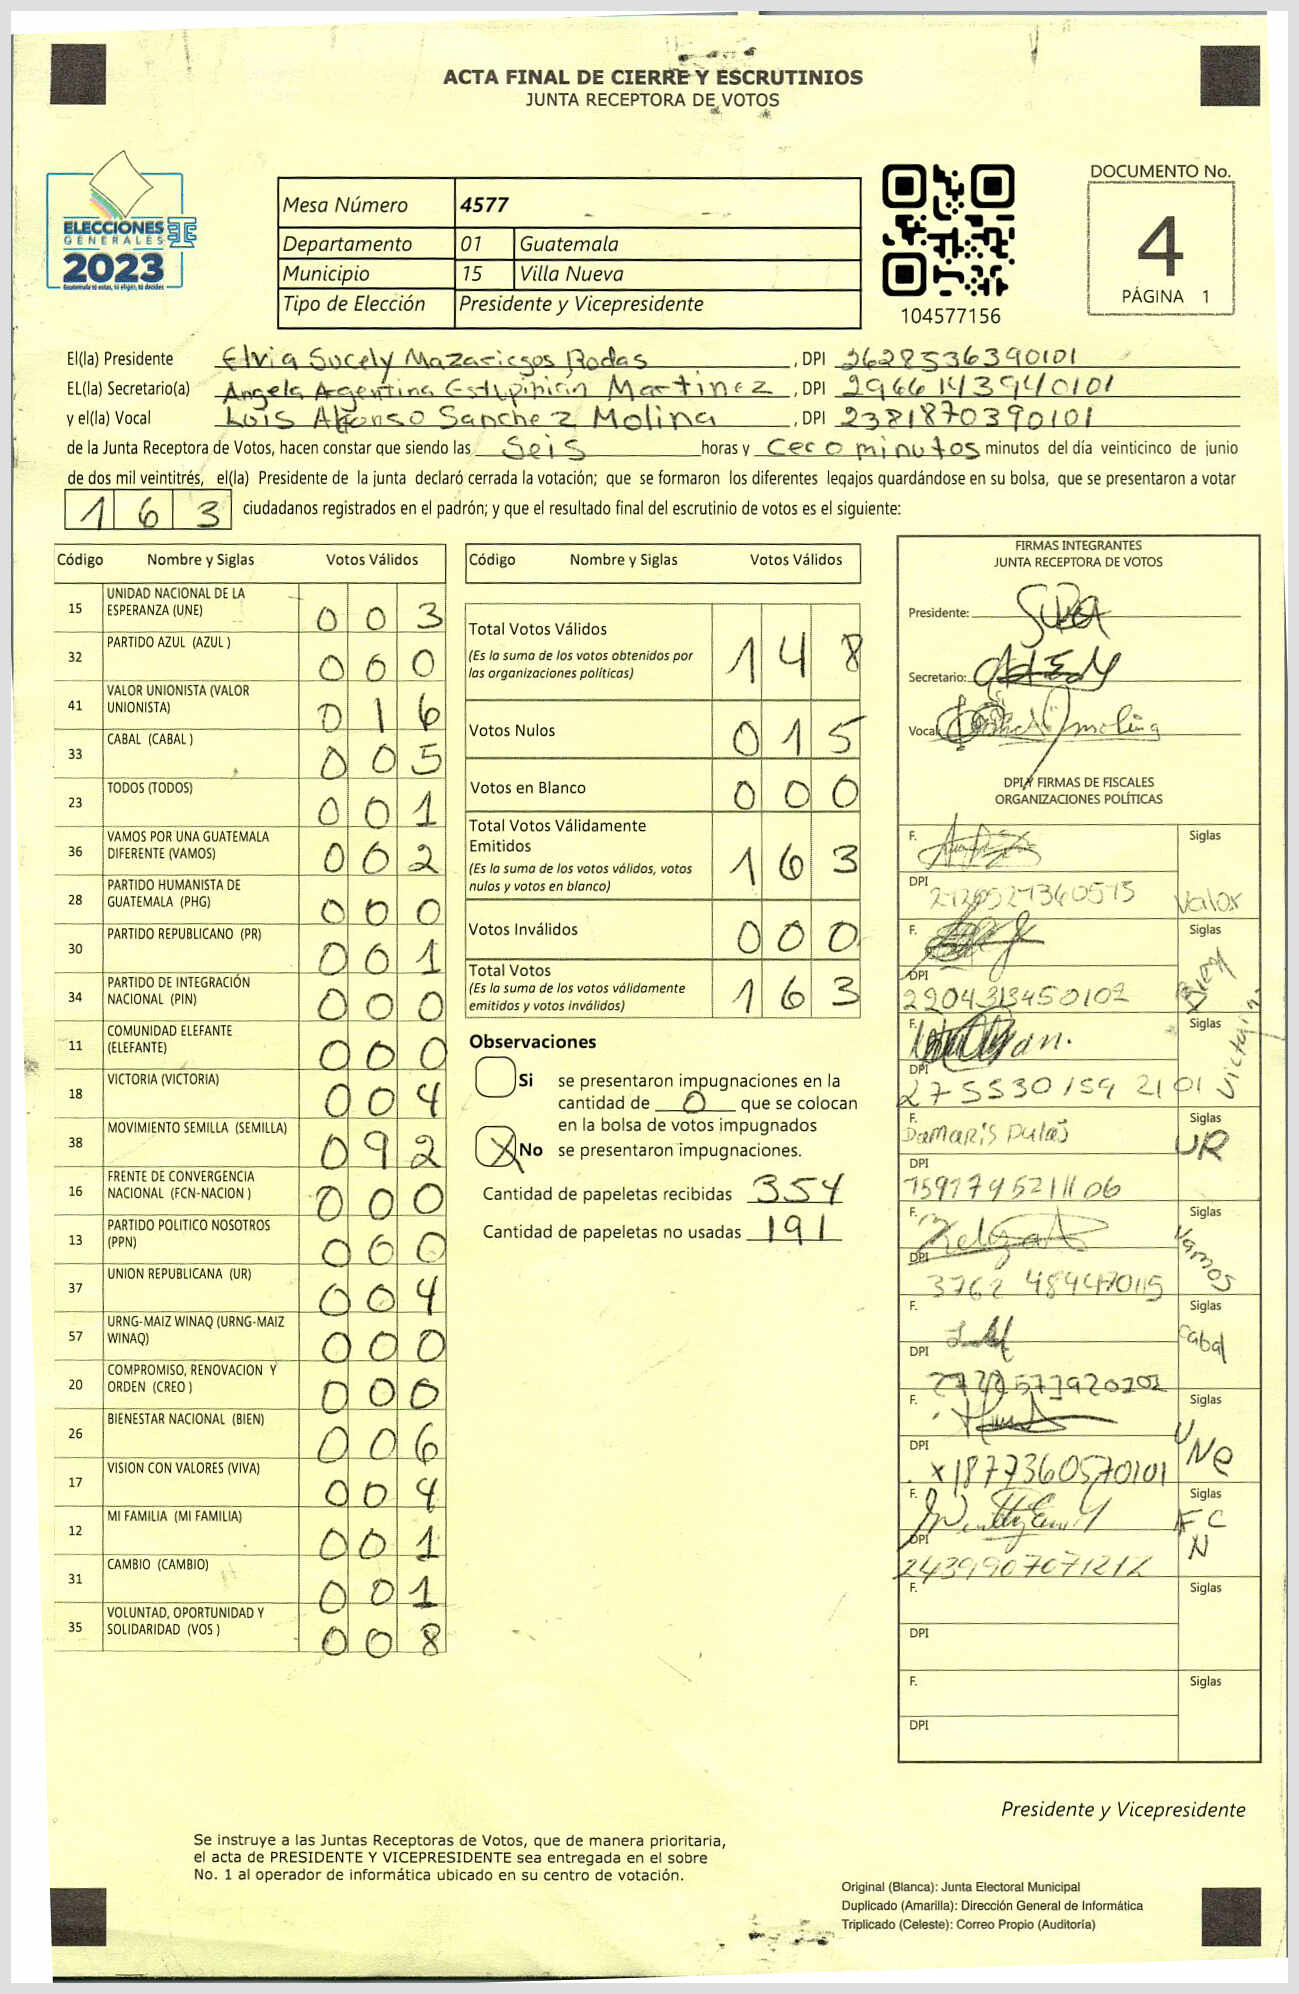 ACTA FINAL DE CIERRE Y ESCRUTINIOS
JUNTA RECEPTORA DE VOTOS
ELECCIONES
GENERALES
2023
Guatemala tú estas, tú eliges, tú decides
Mesa Número 4577
Departamento 01 Guatemala
Municipio 15 Villa Nueva
Tipo de Elección Presidente y Vicepresidente
104577156
DOCUMENTO No.
4
PÁGINA 1
El(la) Presidente Elvia Sucely Mazariegos Rodas, DPI 2628536390101
EL(la) Secretario(a) Angela Argentina Estupiñian Martinez, DPI 2966143940101
y el(la) Vocal Luis Alfonso Sanchez Molina, DPI 2381870390101
de la Junta Receptora de Votos, hacen constar que siendo las Seis horas y Cero minutos minutos del día veinticinco de junio
de dos mil veintitrés, el(la) Presidente de la junta declaró cerrada la votación; que se formaron los diferentes legajos guardándose en su bolsa, que se presentaron a votar
163 ciudadanos registrados en el padrón; y que el resultado final del escrutinio de votos es el siguiente:
Código Nombre y Siglas Votos Válidos
15 UNIDAD NACIONAL DE LA ESPERANZA (UNE) 003
32 PARTIDO AZUL (AZUL ) 000
41 VALOR UNIONISTA (VALOR UNIONISTA) 016
33 CABAL (CABAL ) 005
23 TODOS (TODOS) 001
36 VAMOS POR UNA GUATEMALA DIFERENTE (VAMOS) 002
28 PARTIDO HUMANISTA DE GUATEMALA (PHG) 000
30 PARTIDO REPUBLICANO (PR) 001
34 PARTIDO DE INTEGRACIÓN NACIONAL (PIN) 000
11 COMUNIDAD ELEFANTE (ELEFANTE) 000
18 VICTORIA (VICTORIA) 004
38 MOVIMIENTO SEMILLA (SEMILLA) 092
16 FRENTE DE CONVERGENCIA NACIONAL (FCN-NACION ) 000
13 PARTIDO POLITICO NOSOTROS (PPN) 000
37 UNION REPUBLICANA (UR) 004
57 URNG-MAIZ WINAQ (URNG-MAIZ WINAQ) 000
20 COMPROMISO, RENOVACION Y ORDEN (CREO ) 000
26 BIENESTAR NACIONAL (BIEN) 006
17 VISION CON VALORES (VIVA) 004
12 MI FAMILIA (MI FAMILIA) 001
31 CAMBIO (CAMBIO) 001
35 VOLUNTAD, OPORTUNIDAD Y SOLIDARIDAD (VOS ) 008
Código Nombre y Siglas Votos Válidos
Total Votos Válidos 148
(Es la suma de los votos obtenidos por
las organizaciones políticas)
Votos Nulos 015
Votos en Blanco 000
Total Votos Válidamente
Emitidos 163
(Es la suma de los votos válidos, votos
nulos y votos en blanco)
Votos Inválidos 000
Total Votos 163
(Es la suma de los votos válidamente
emitidos y votos inválidos)
Observaciones
Si se presentaron impugnaciones en la
cantidad de 0 que se colocan
en la bolsa de votos impugnados
X No se presentaron impugnaciones.
Cantidad de papeletas recibidas 354
Cantidad de papeletas no usadas 191
FIRMAS INTEGRANTES
JUNTA RECEPTORA DE VOTOS
Presidente:
Secretario:
Vocal:
DPI Y FIRMAS DE FISCALES
ORGANIZACIONES POLÍTICAS
F. Siglas
DPI Valor
F. Siglas
DPI 2204313450102 Bien
F. Siglas
DPI 275530159 2101 Victoria
F. Damaris Siglas
DPI UR
F. Siglas
DPI 3762 489470115 Vamos
F. Siglas
DPI Cabal
F. Siglas
DPI x1877360570101 UNe
F. Siglas
DPI 2439907071212 FCN
F. Siglas
DPI
F. Siglas
DPI
Presidente y Vicepresidente
Se instruye a las Juntas Receptoras de Votos, que de manera prioritaria,
el acta de PRESIDENTE Y VICEPRESIDENTE sea entregada en el sobre
No. 1 al operador de informática ubicado en su centro de votación.
Original (Blanca): Junta Electoral Municipal
Duplicado (Amarilla): Dirección General de Informática
Triplicado (Celeste): Correo Propio (Auditoría)